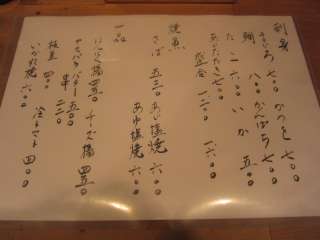 刺身
七〇〇 かつを 七〇〇
鯛 八〇〇 かんぱち 七〇〇
たこ 六〇〇 いか 五〇〇
あじたたき 七〇〇
盛合 一二〇〇 一六〇〇
焼魚
さば 五五〇 あじ塩焼 六〇〇
あゆ塩焼 六〇〇
一品
にんにく揚 四五〇 チーズ揚 四五〇
アスパラバター 五五〇
串 二二〇
枝豆 四〇〇 冷トマト 四〇〇
いか丸焼 六〇〇